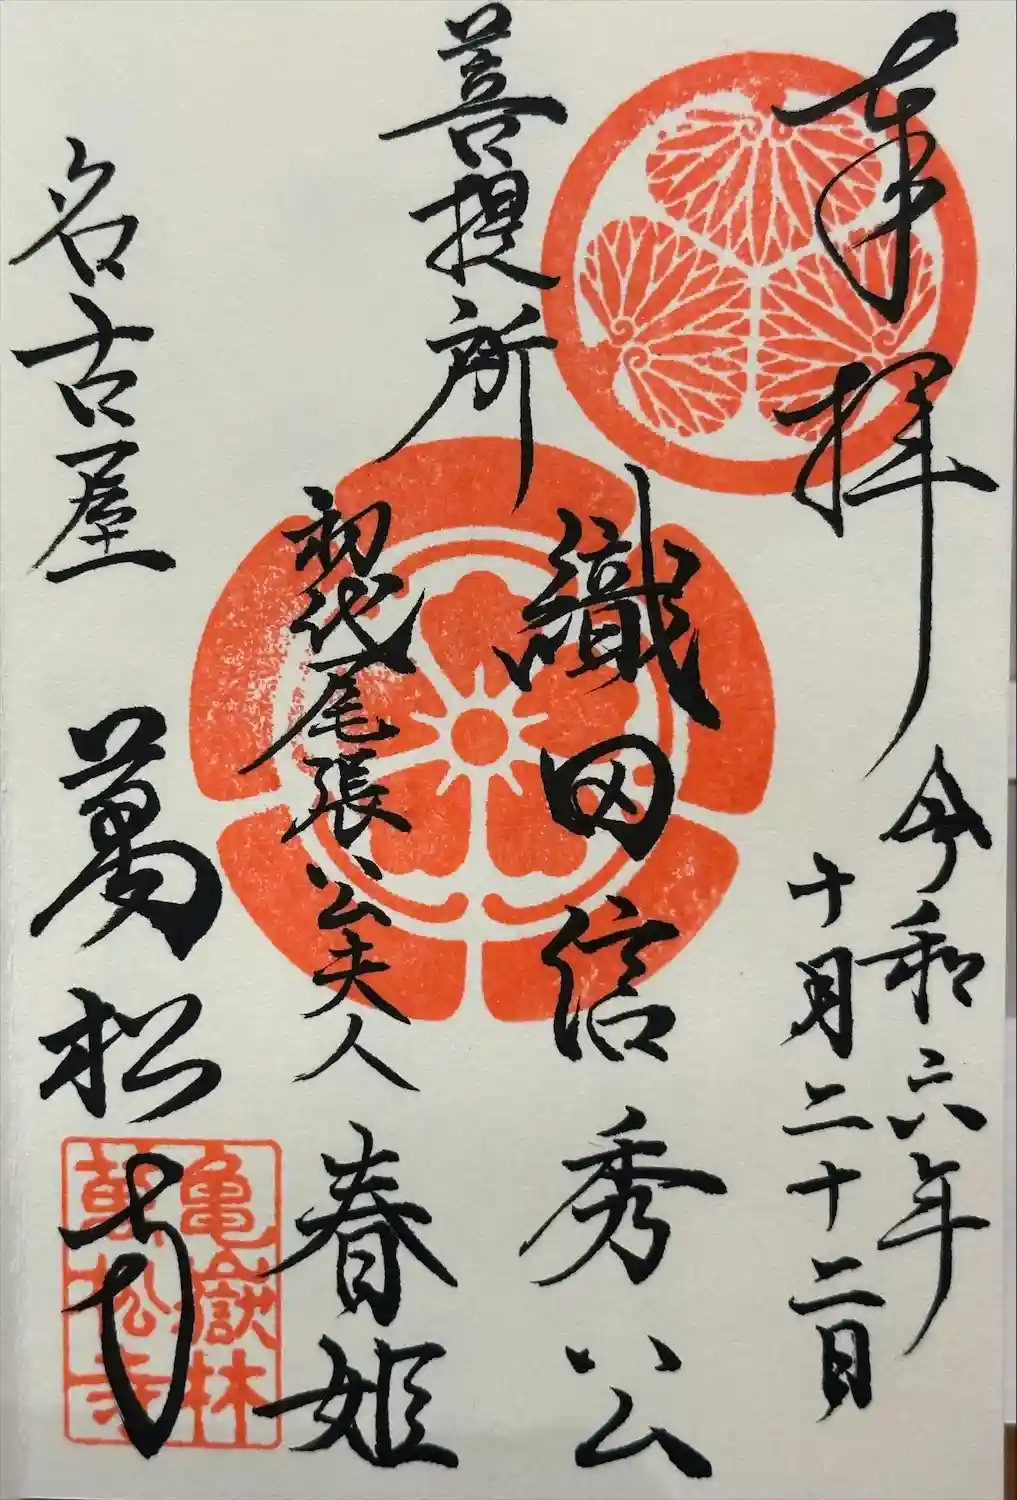 奉拝
令和六年
十月二十二日
菩提所
織田信秀公
初代尾張公夫人
春姫
名古屋
萬松寺
亀嶽林
萬松寺